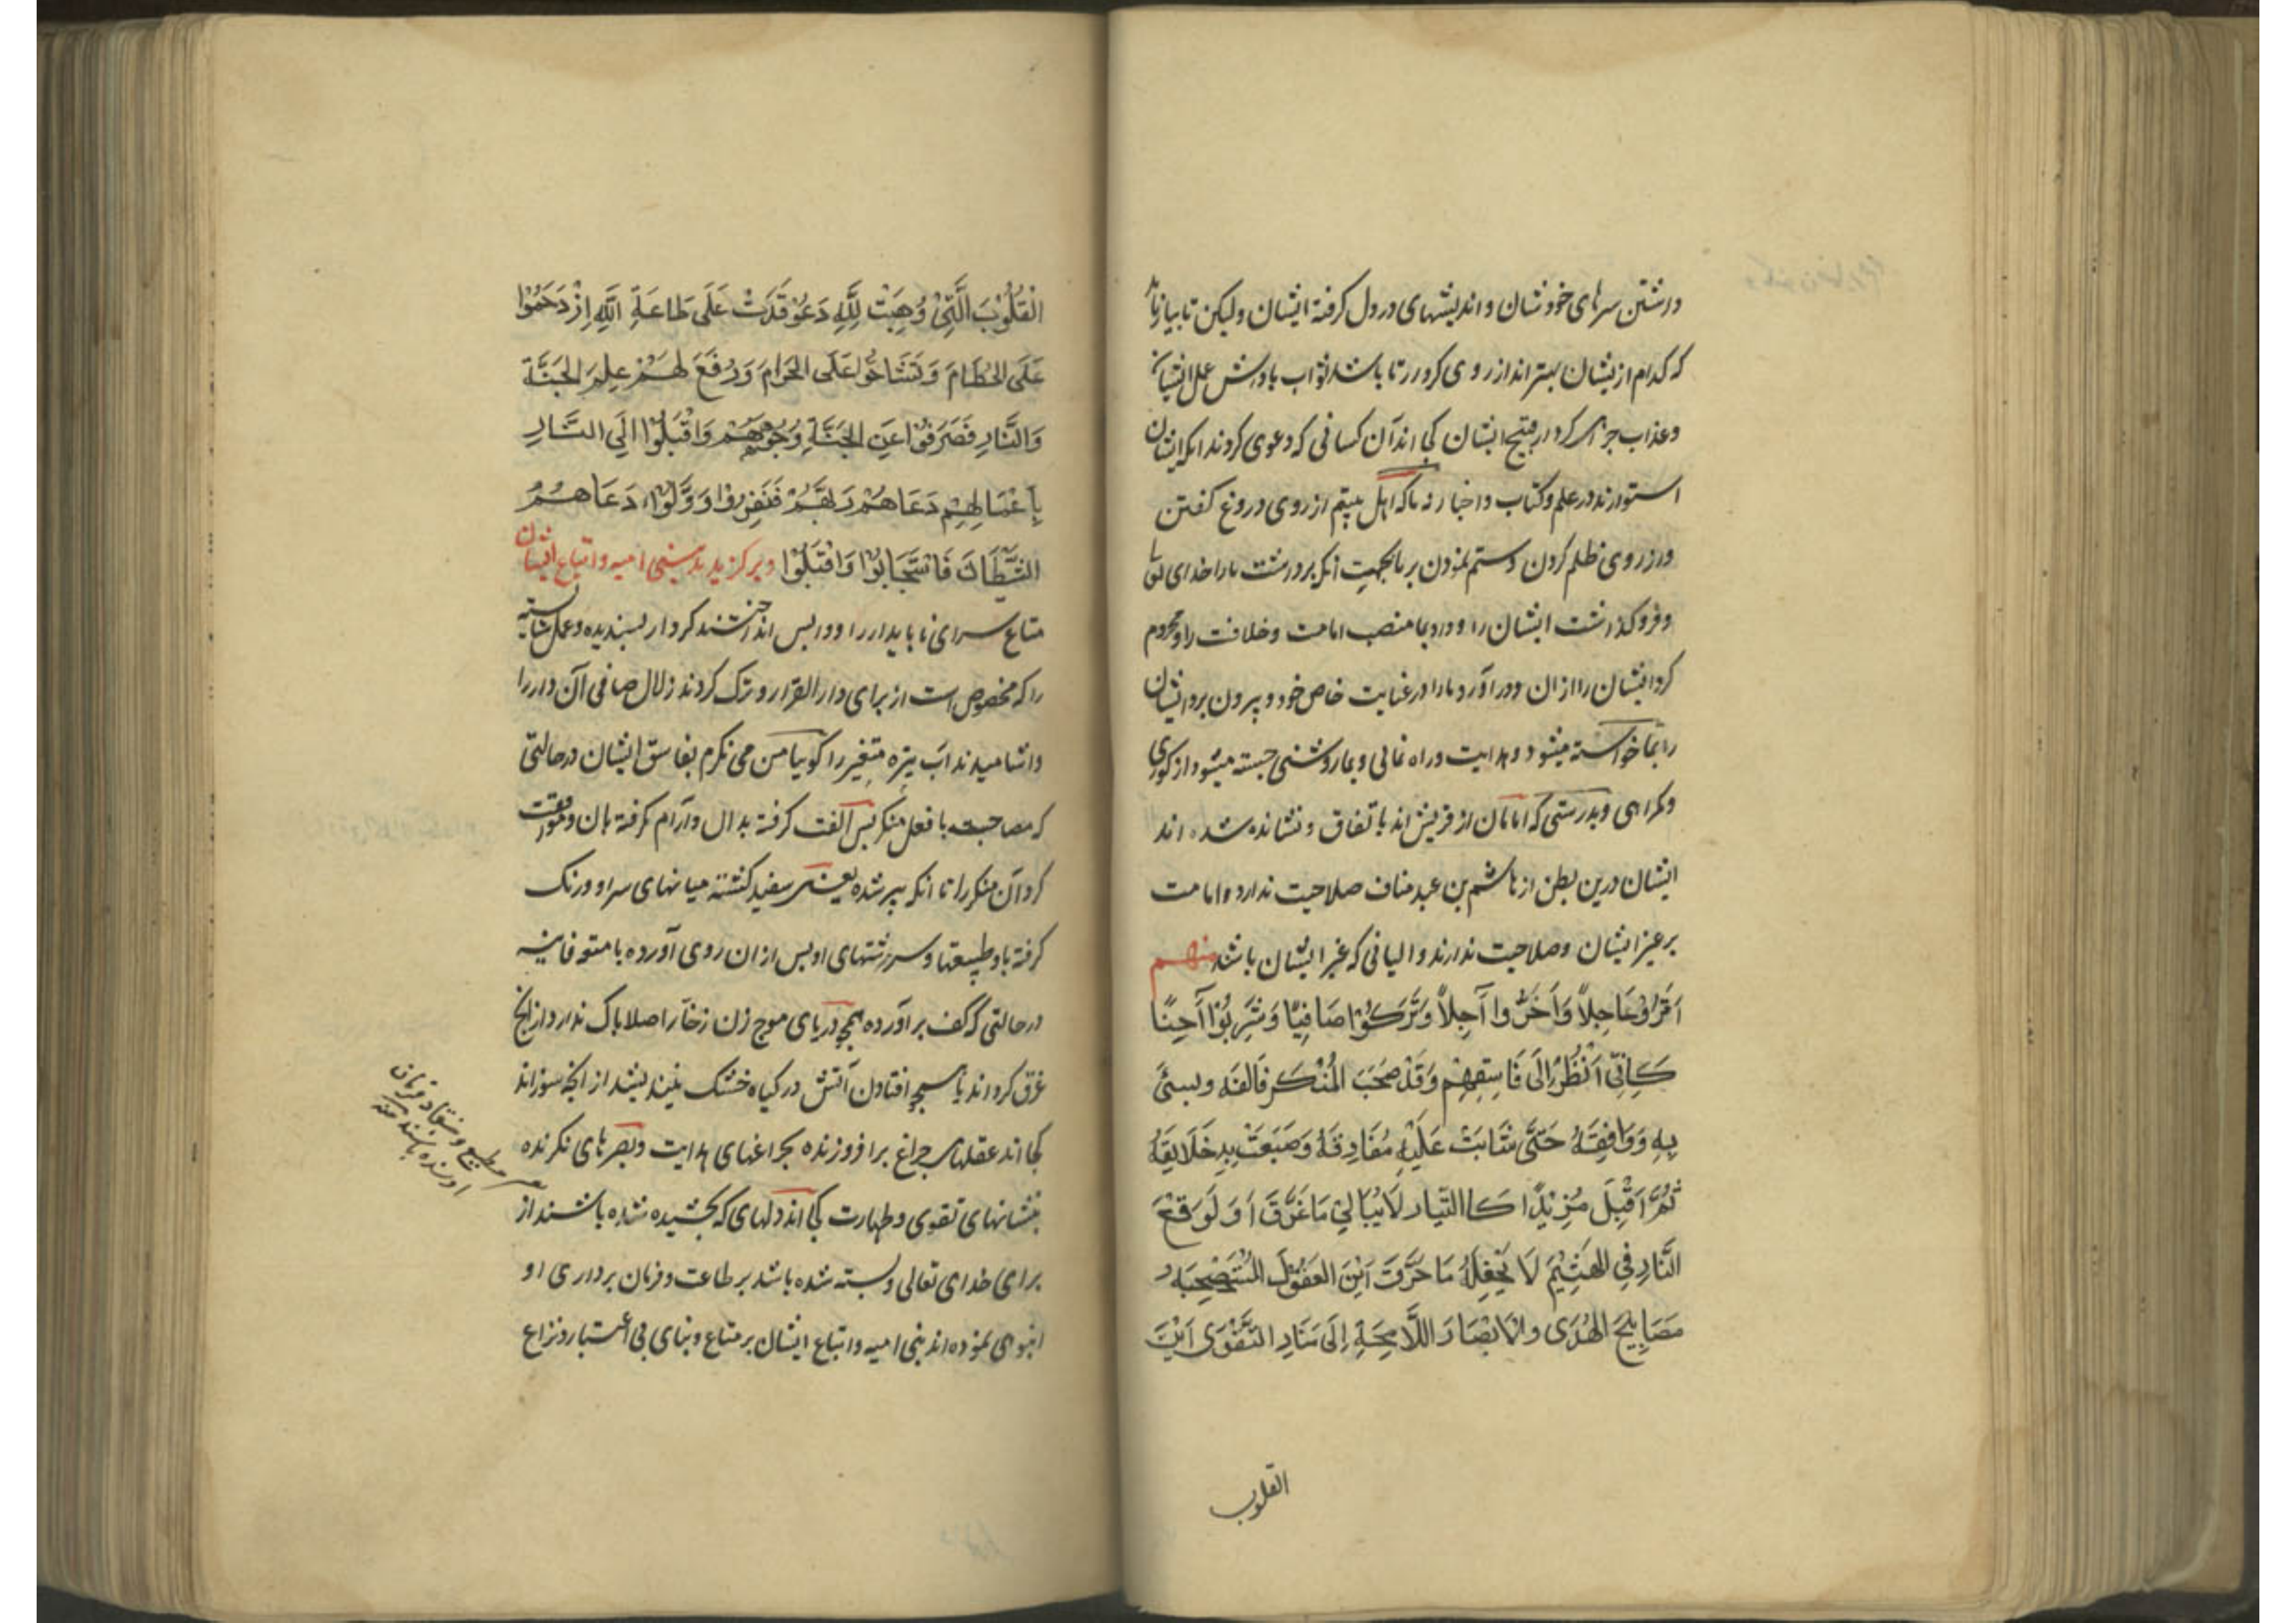 درشتن سرهای خودشان و اندیشهای در دل گرفته ایشان ولیکن تا بیازماید
که کدام ازیشان بهتراند از روی کردار تا باشد ثواب پاداش عمل ایشان
و عذاب جزای کردار قبیح ایشان کجا اند آن کسانی که دعوی کردند انکه ایشان
استوارند در علم و کتاب و اخبار نه ما که اهل بیتیم از روی دروغ گفتن
و از روی ظلم کردن و ستم نمودن بر ما بجهت انکه برداشت ما را خدای تعالی
و فرو گذاشت ایشان را و داد بما منصب امامت و خلافت را و محروم
کرد ایشان را از ان و در آورد ما را در عنایت خاص خود و بیرون برد ایشان
را بما خواسته میشود هدایت و راه نمائی و بما روشنی جسته میشود از کوری
و گمراهی و بدرستی که امامان از قریش اند باتفاق و نشانده شده اند
ایشان درین بطن از هاشم بن عبد مناف صلاحیت ندارد امامت
بر غیر ایشان و صلاحیت ندارند والیانی که غیر ایشان باشد منهم
آثَرُوا عَاجِلًا وَأَخَّرُوا آجِلًا وَتَرَكُوا صَافِيًا وَشَرِبُوا آجِنًا
كَأَنِّي أَنْظُرُ إِلَى فَاسِقِهِمْ وَقَدْ صَحِبَ الْمُنْكَرَ فَأَلِفَهُ وبسئ
بِهِ وَوَافَقَهُ حَتَّى شَابَتْ عَلَيْهِ مَفَارِقُهُ وَصُبِغَتْ بِهِ خَلَايِقُهُ
ثُمَّ أَقْبَلَ مُزْبِدًا كَالتَّيَّارِ لَا يُبَالِي مَا غَرَّقَ أَوْ كَوَقْعِ
النَّارِ فِي الْهَشِيمِ لَا يَحْفِلُ مَا حَرَّقَ أَيْنَ الْعُقُولُ الْمُسْتَصْبِحَةُ
مَصَابِيحَ الْهُدَى وَالْأَبْصَارُ اللَّامِحَةُ إِلَى مَنَارِ التَّقْوَى أَيْنَ
القلوب
الْقُلُوبُ الَّتِي وُهِبَتْ لِلَّهِ وَعُوقِدَتْ عَلَى طَاعَةِ اللَّهِ ازْدَحَمُوا
عَلَى الْحُطَامِ وَتَشَاحُّوا عَلَى الْحَرَامِ وَرُفِعَ لَهُمْ عَلَمُ الْجَنَّةِ
وَالنَّارِ فَصَرَفُوا عَنِ الْجَنَّةِ وُجُوهَهُمْ وَأَقْبَلُوا إِلَى النَّارِ
بِأَعْمَالِهِمْ دَعَاهُمْ رَبُّهُمْ فَنَفَرُوا وَوَلَّوْا دَعَاهُمُ
الشَّيْطَانُ فَاسْتَجَابُوا وَأَقْبَلُوا و برگزیدند بنی امیه و اتباع ایشان
متاع سرای ناپایدار را و واپس انداختند کردار پسندیده و عمل شایسته
را که مخصوص است از برای دار القرار و ترک کردند زلال صافی آن دار را
و اشامیدند آب تیزه متغیر را گوییا من می نگرم بفاسق ایشان در حالتی
که مصاحبت با فعل منکر پس الفت گرفته بدان و آرام گرفته بان و موافقت
کرد آن منکر را تا انکه پیر شده یعنی سفید گشته میانهای سر او و رنگ
گرفته باو طبیعتها و سرشتهای او پس از ان روی آورده بامتعه فانیه
در حالتی که کف بر آورده همچو دریای موج زن زخار اصلا باک ندارد از انچ
غرق گرداند یا همچو افتادن آتش در گیاه خشک نیندیشد از انچه سوزاند
کجا اند عقلهای چراغ برافروزنده بچراغهای هدایت و بصرهای نگرنده
بنشانهای تقوی و طهارت کجا اند دلهای که بخشیده شده باشند از
برای خدای تعالی و بسته شده باشد بر طاعت و فرمان برداری او
انبوهی نموده اند بنی امیه و اتباع ایشان بر متاع دنیای بی اعتبار و نزاع
مطیع و منقاد فرمان